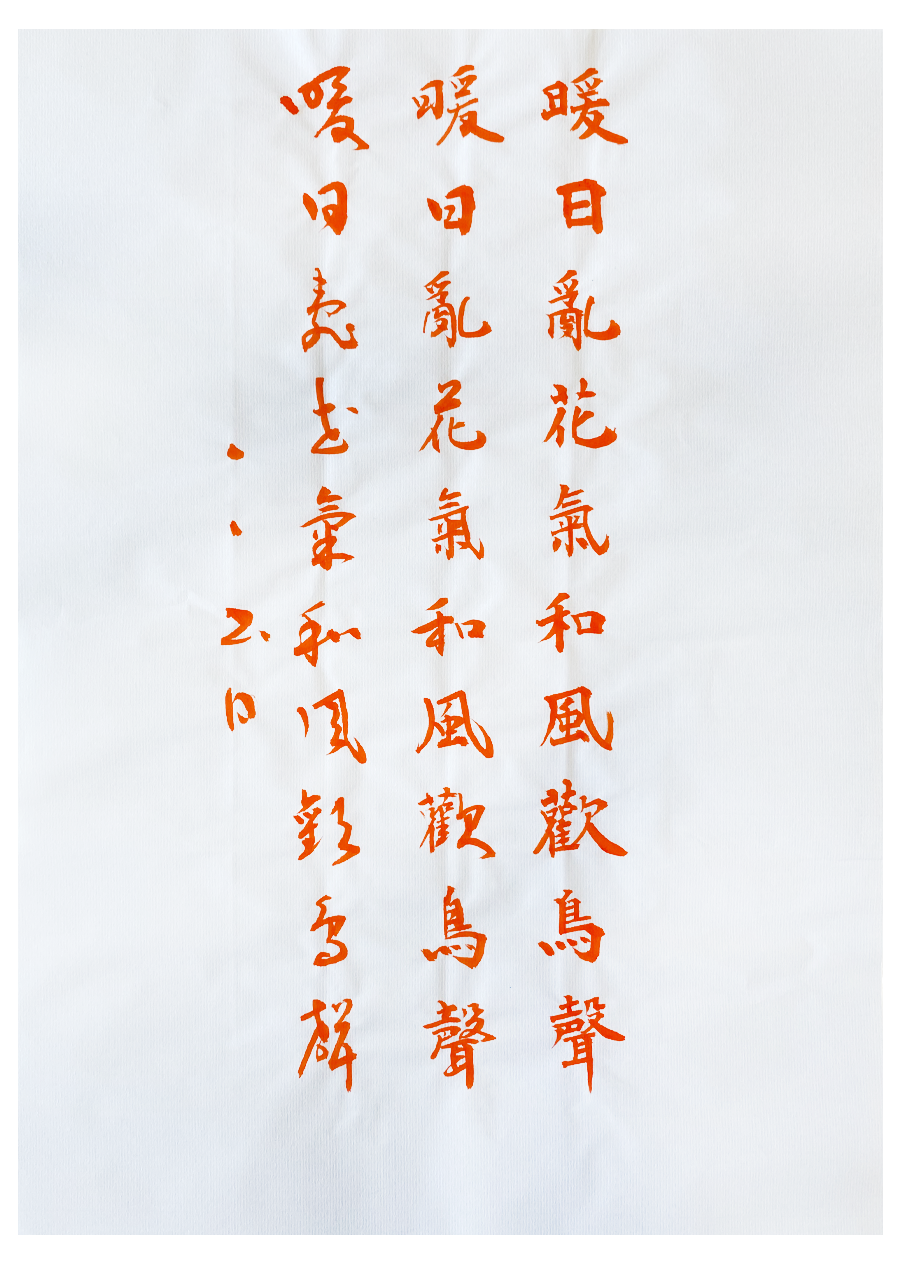 暖日亂花氣和風歡鳥聲
暖日亂花氣和風歡鳥聲
暖日亂花氣和風歡鳥聲